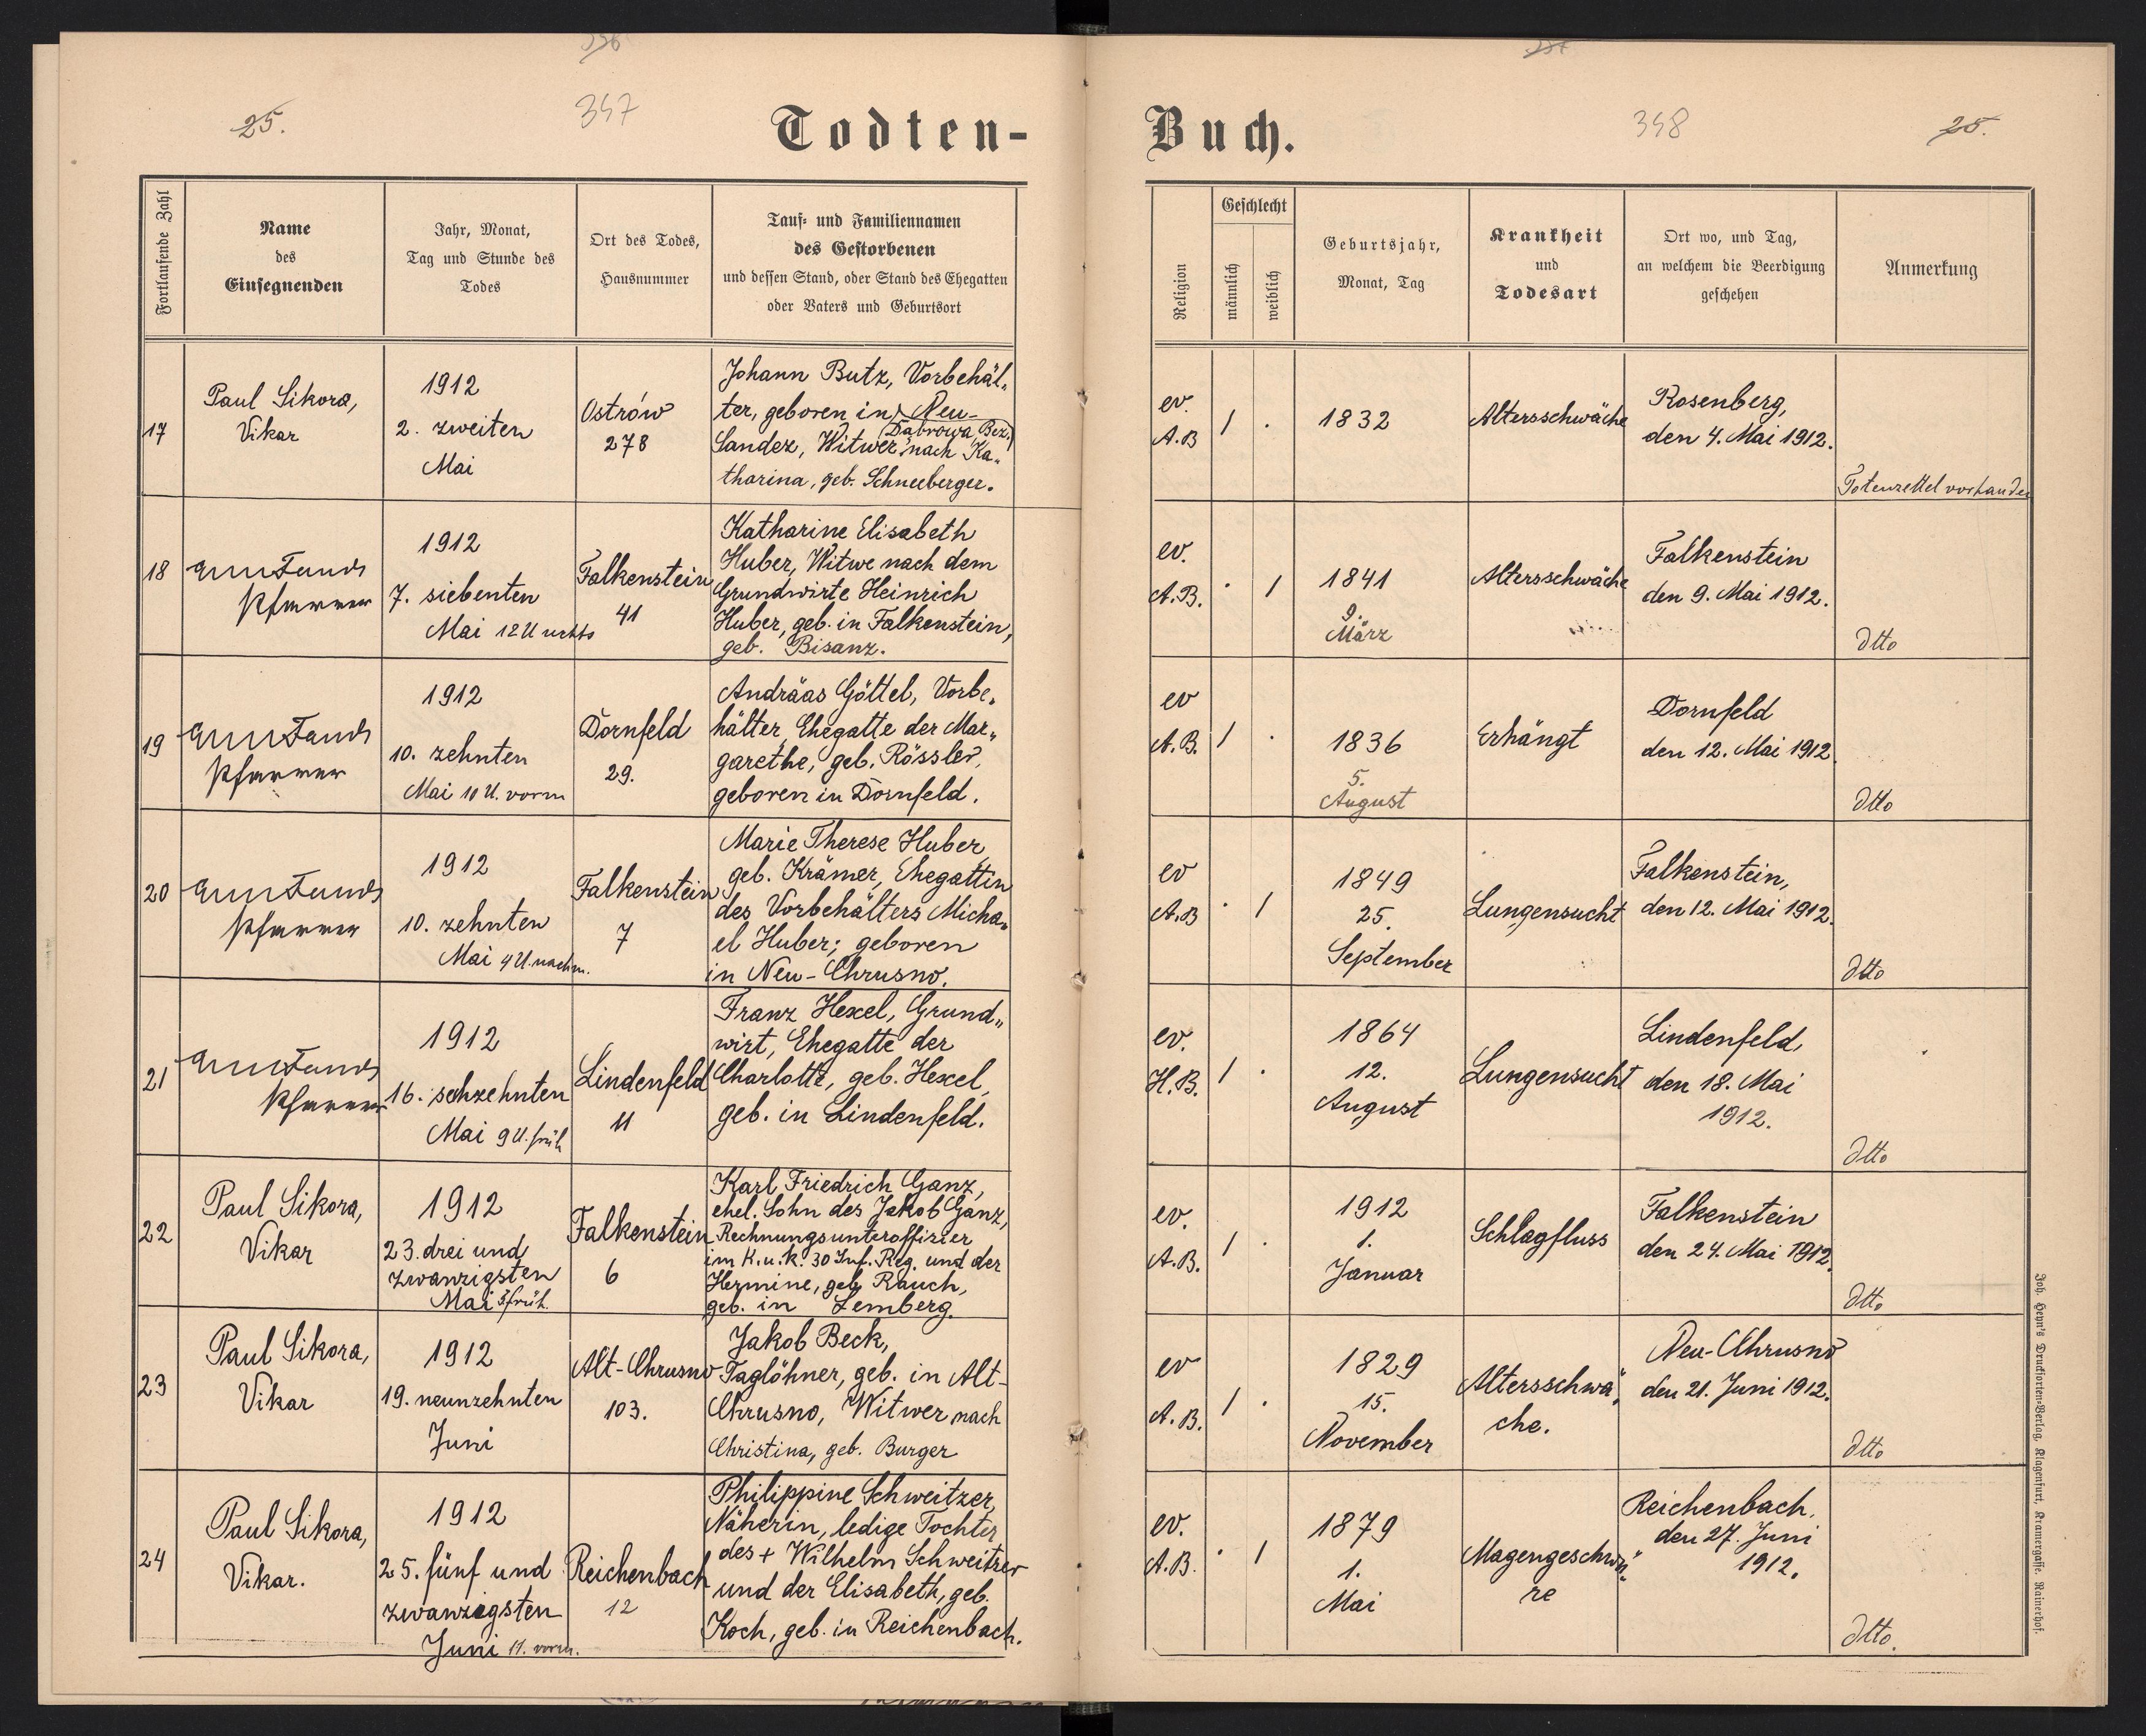 25.
347
Todten-
Buch.
348
25.
Fortlaufende Zahl
Name
des
Einsegnenden
Jahr, Monat,
Tag und Stunde des
Todes
Ort des Todes,
Hausnummer
Tauf- und Familiennamen
des Gestorbenen
und dessen Stand, oder Stand des Ehegatten
oder Vaters und Geburtsort
Religion
Geschlecht
männlich
weiblich
Geburtsjahr,
Monat, Tag
Krankheit
und
Todesart
Ort wo, und Tag,
an welchem die Beerdigung
geschehen
Anmerkung
17
Paul Sikora,
Vikar
1912
2. zweiten
Mai
Ostrów
278
Johann Butz, Vorbehäl„
ter, geboren in Neu-
(Dąbrowa, Bez.)
Sandez, Witwer nach Ka„
tharina, geb. Schneeberger.
ev.
A.B
1 .
1832
Altersschwäche
Rosenberg,
den 4. Mai 1912.
Totenzettel vorhanden
18
Pfarrer
1912
7. siebenten
Mai 12 U nchts
Falkenstein
41
Katharine Elisabeth
Huber, Witwe nach dem
Grundwirte Heinrich
Huber, geb. in Falkenstein,
geb. Bisanz.
ev.
A.B.
. 1
1841
9.
März
Altersschwäche
Falkenstein
den 9. Mai 1912.
dtto
19
Pfarrer
1912
10. zehnten
Mai 10 U. vorm
Dornfeld
29.
Andräas Göttel, Vorbe„
hälter, Ehegatte der Mar„
garethe, geb. Rössler,
geboren in Dornfeld.
ev
A.B.
1 .
1836
5.
August
Erhängt
Dornfeld
den 12. Mai 1912.
dtto
20
Pfarrer
1912
10. zehnten
Mai 4 U. nachm.
Falkenstein
7
Marie Therese Huber
geb. Krämer, Ehegattin
des Vorbehälters Micha„
el Huber; geboren
in Neu-Chrusno.
ev
A.B
. 1
1849
25.
September
Lungensucht
Falkenstein,
den 12. Mai 1912.
dtto
21
Pfarrer
1912
16. sehzehnten
Mai 9 U. früh
Lindenfeld
11
Franz Hexel, Grund„
wirt, Ehegatte der
Charlotte, geb. Hexel,
geb. in Lindenfeld.
ev.
H.B.
1 .
1864
12.
August
Lungensucht
Lindenfeld,
den 18. Mai
1912.
dtto
22
Paul Sikora,
Vikar
1912
23. drei und
zwanzigsten
Mai 3 früh.
Falkenstein
6
Karl Friedrich Ganz,
ehel. Sohn des Jakob Ganz,
Rechnungsunteroffizier
im K.u.k. 30 Inf. Reg. und der
Hermine, geb. Rauch,
geb. in Lemberg.
ev.
A.B.
1 .
1912
1.
Januar
Schlagfluss
Falkenstein
den 24. Mai 1912.
dtto
23
Paul Sikora,
Vikar
1912
19. neunzehnten
Juni
Alt-Chrusno
103.
Jakob Beck,
Taglöhner, geb. in Alt-
Chrusno, Witwer nach
Christina, geb. Burger
ev
A.B.
1 .
1829
15.
November
Altersschwä„
che.
Neu-Chrusno
den 21. Juni 1912.
dtto
24
Paul Sikora,
Vikar.
1912
25. fünf und
zwanzigsten
Juni 11. vorm.
Reichenbach
12
Philippine Schweitzer,
Näherin, ledige Tochter
des + Wilhelm Schweitzer
und der Elisabeth, geb.
Koch, geb. in Reichenbach.
ev.
A.B.
. 1
1879
1.
Mai
Magengeschwü„
re
Reichenbach.
den 27. Juni
1912.
dtto.
Joh. Heyn's Drucksorten-Verlag, Klagenfurt, Kramergasse, Rainerhof.